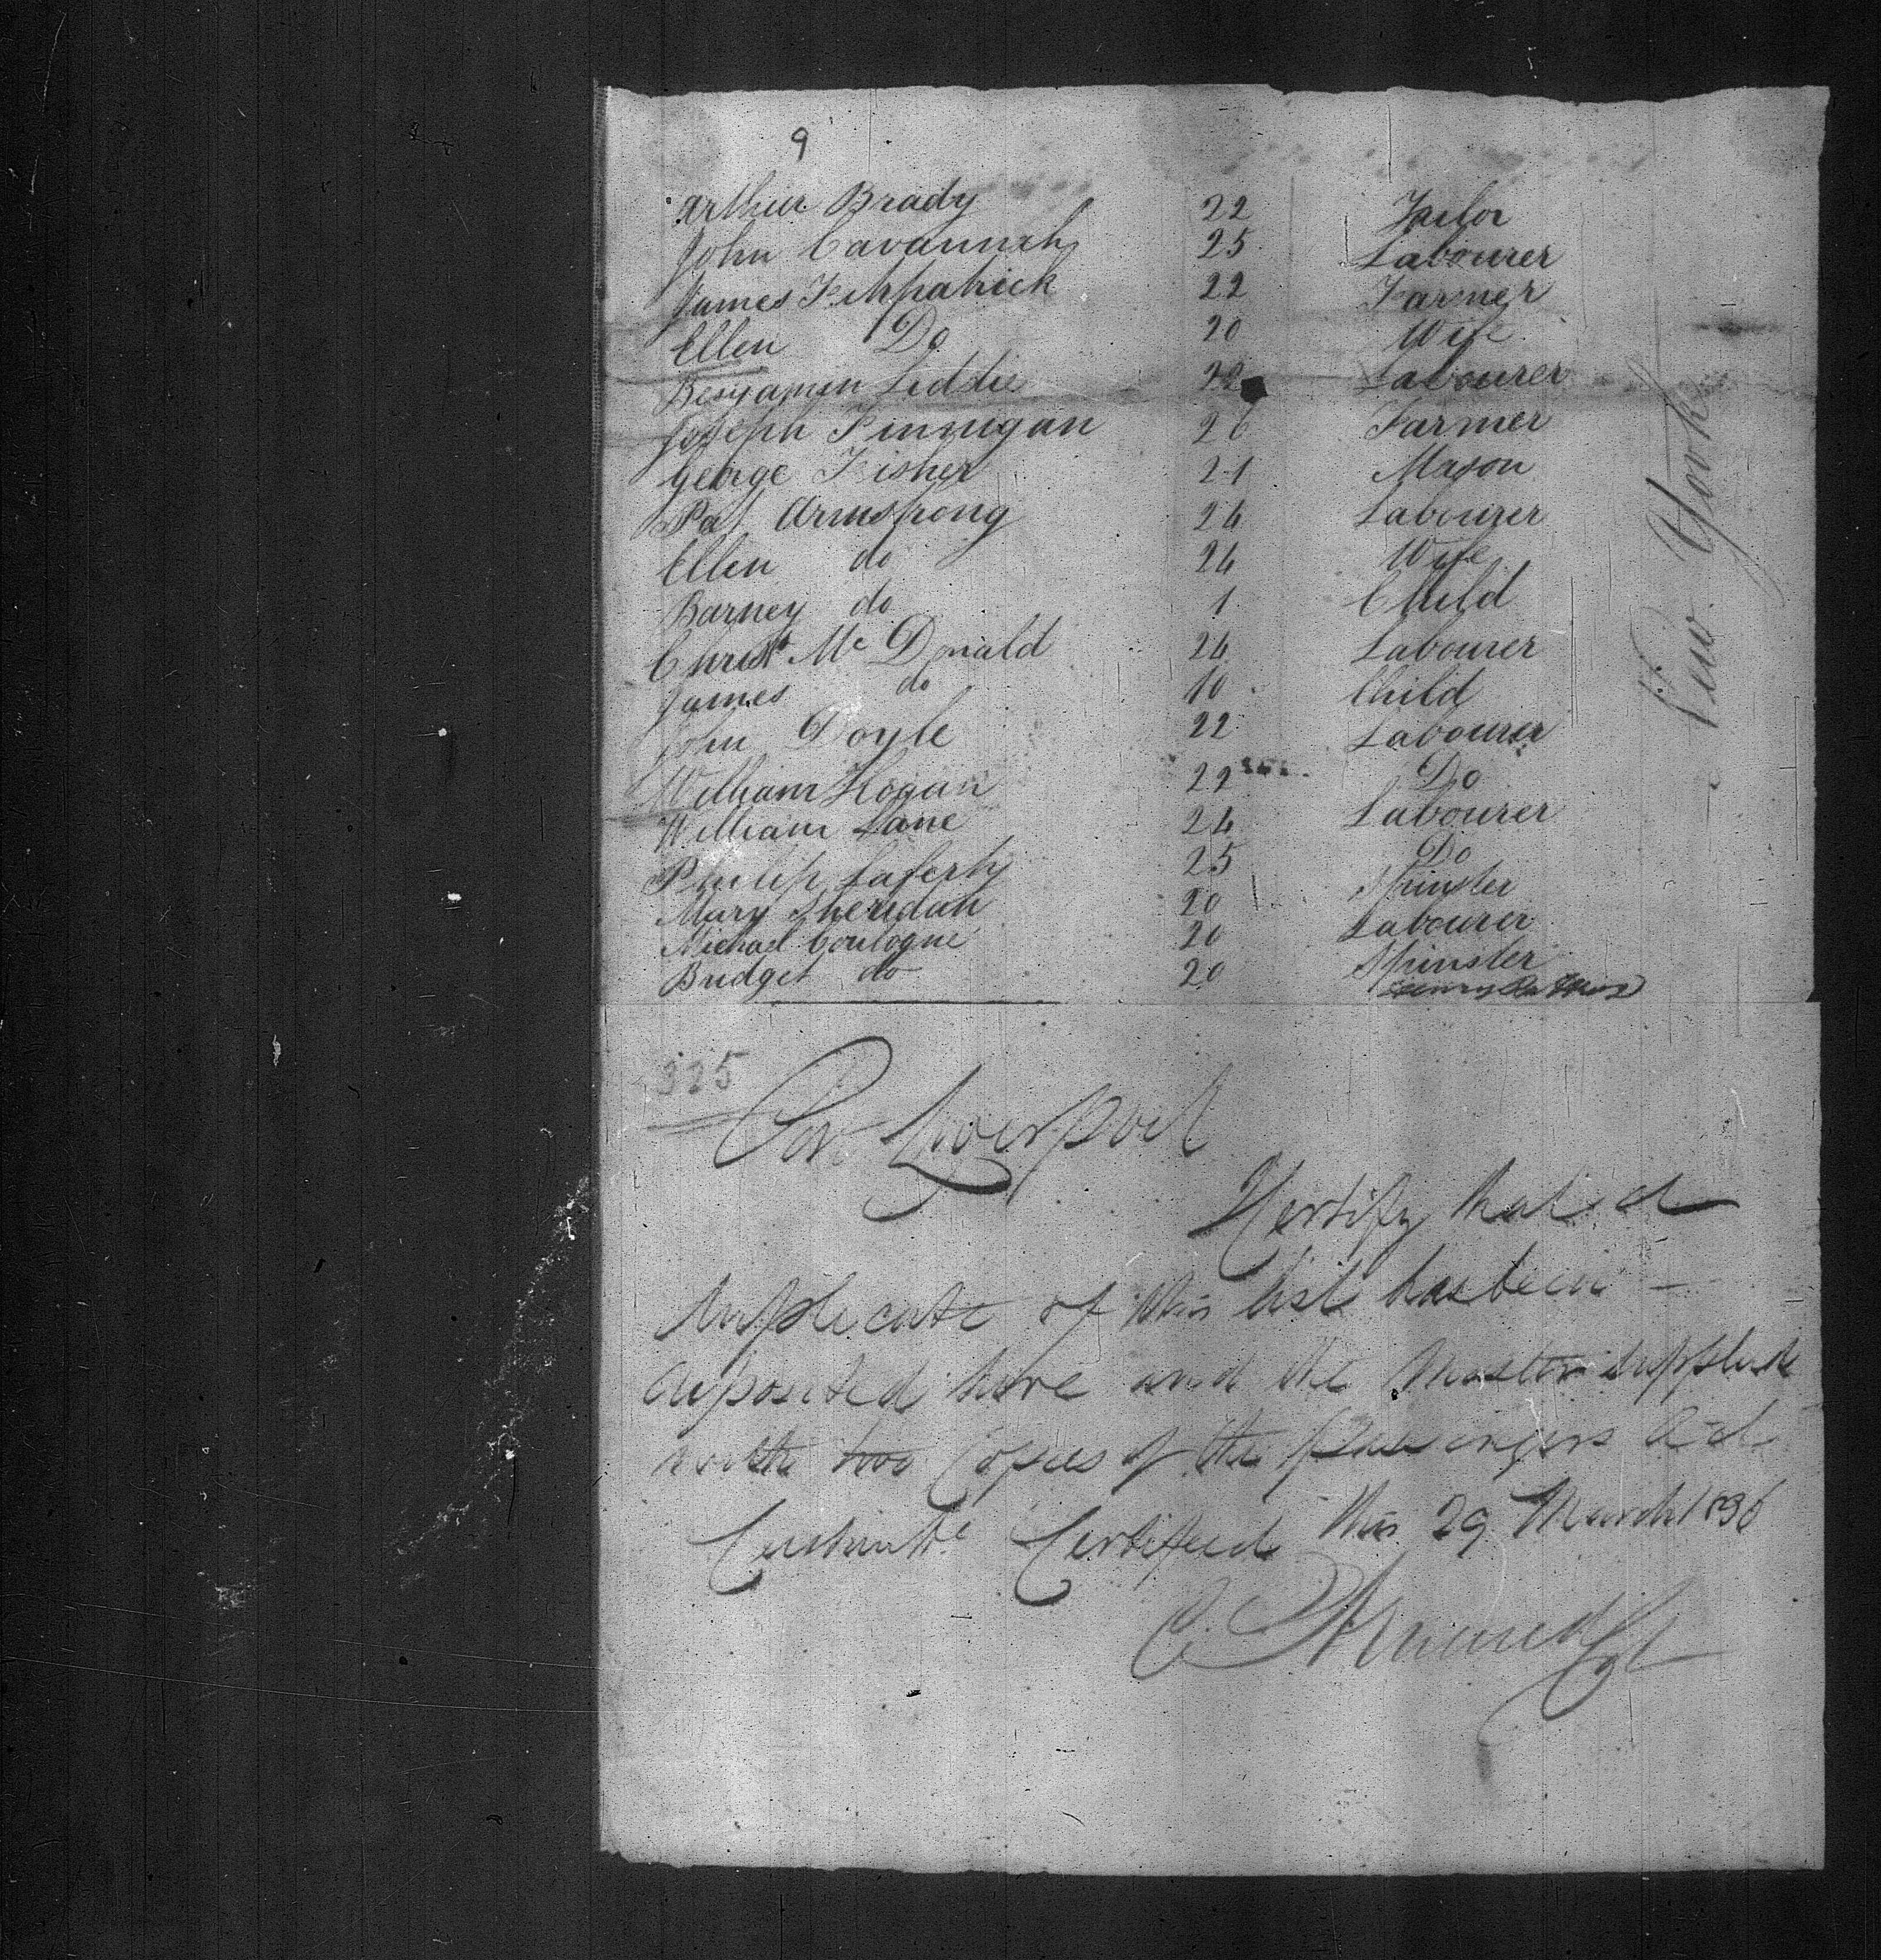 9
Arthur Brady 22 Tailor
John Cavannah 25 Labourer
James Fitzpatrick 22 Farmer
Ellen Do 20 Wife
Benjamen Liddie 22 Labourer
Joseph Finnigan 26 Farmer
George Fisher 21 Mason
Pat Armstrong 24 Labourer
Ellen do 24 Wife
Barney do 1 Child
Christ Mc Donald 24 Labourer
James do 10 Child
John Doyle 22 Labourer
William Hogan 22 Do
William Lane 24 Labourer
Philip Laferty 25 Do
Mary Sheridan 20 Spinster
Michael Coulogne 20 Labourer
Bridget do 20 Spinster
New York
325
Port Liverpool
I Certify that a
duplicate of this list has been
deposited here and the Master supplied
with two Copies of the Passengers Act
Certified this 29 March 1836